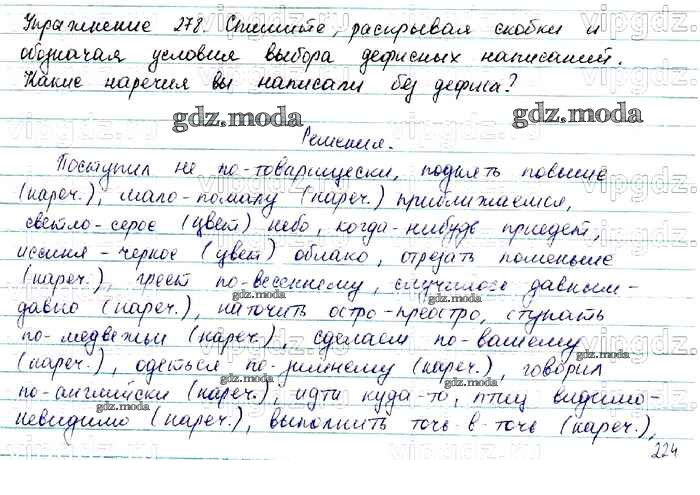 Упражнение 278. Спишите, раскрывая скобки и
обозначая условия выбора дефисных написаний.
Какие наречия вы написали без дефиса?
gdz.moda gdz.moda
Решения.
Поступил не по-товарищески, поднять повыше
(нареч.), мало-помалу (нареч.) приближаемся,
светло-серое (цвет) небо, когда-нибудь приедет,
иссиня-черное (цвет) облако, отрезать поменьше
(нареч.), греет по-весеннему, случилось давным-
давно (нареч.), наточить остро-преостро, ступать
по-медвежьи (нареч.), сделаем по-вашему
(нареч.), одеться по-зимнему (нареч.), говорил
по-английски (нареч.), идти куда-то, птиц видимо-
невидимо (нареч.), выполнить точь-в-точь (нареч.),
224